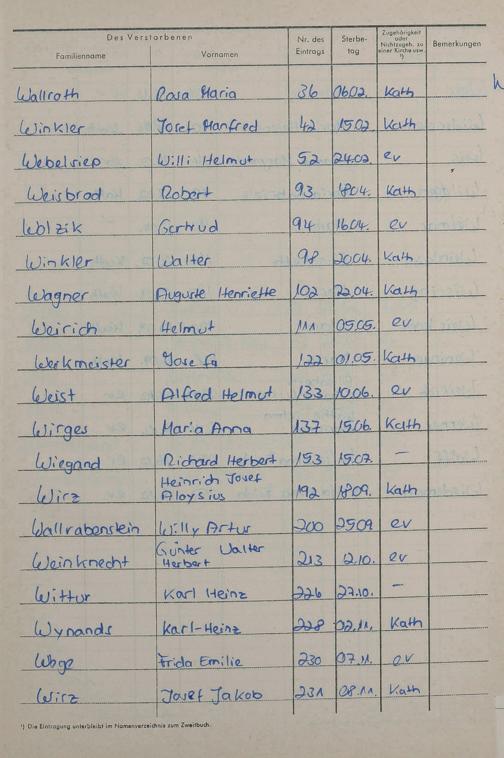 Des Verstorbenen
Familienname Vornamen Nr. des Eintrags Sterbe-tag Zugehörigkeit oder Nichtzugeh. zu einer Kirche usw. ¹) Bemerkungen
Wallroth Rosa Maria 36 06.02. Kath
Winkler Josef Manfred 42 15.02 Kath
Webelsiep Willi Helmut 52 24.02. ev
Weisbrod Robert 93 18.04. Kath
Wolzik Gertrud 94 16.04. ev
Winkler Walter 98 20.04. Kath.
Wagner Auguste Henriette 102 22.04. Kath
Weirich Helmut 111 05.05. ev
Werkmeister Josefa 122 01.05. Kath
Weist Alfred Helmut 133 10.06. ev
Wirges Maria Anna 137 15.06. Kath
Wiegand Richard Herbert 153 15.07. —
Wirz Heinrich Josef
Aloysius 192 18.09. Kath
Wallrabenstein Willy Artur 200 25.09 ev
Weinknecht Günter Walter
Herbert 213 12.10. ev
Wittur Karl Heinz 226 27.10. —
Wynands Karl-Heinz 228 02.11. Kath
Frida Emilie 230 07.11. ev
Wirz Josef Jakob 231 08.11. Kath
¹) Die Eintragung unterbleibt im Namenverzeichnis zum Zweitbuch.